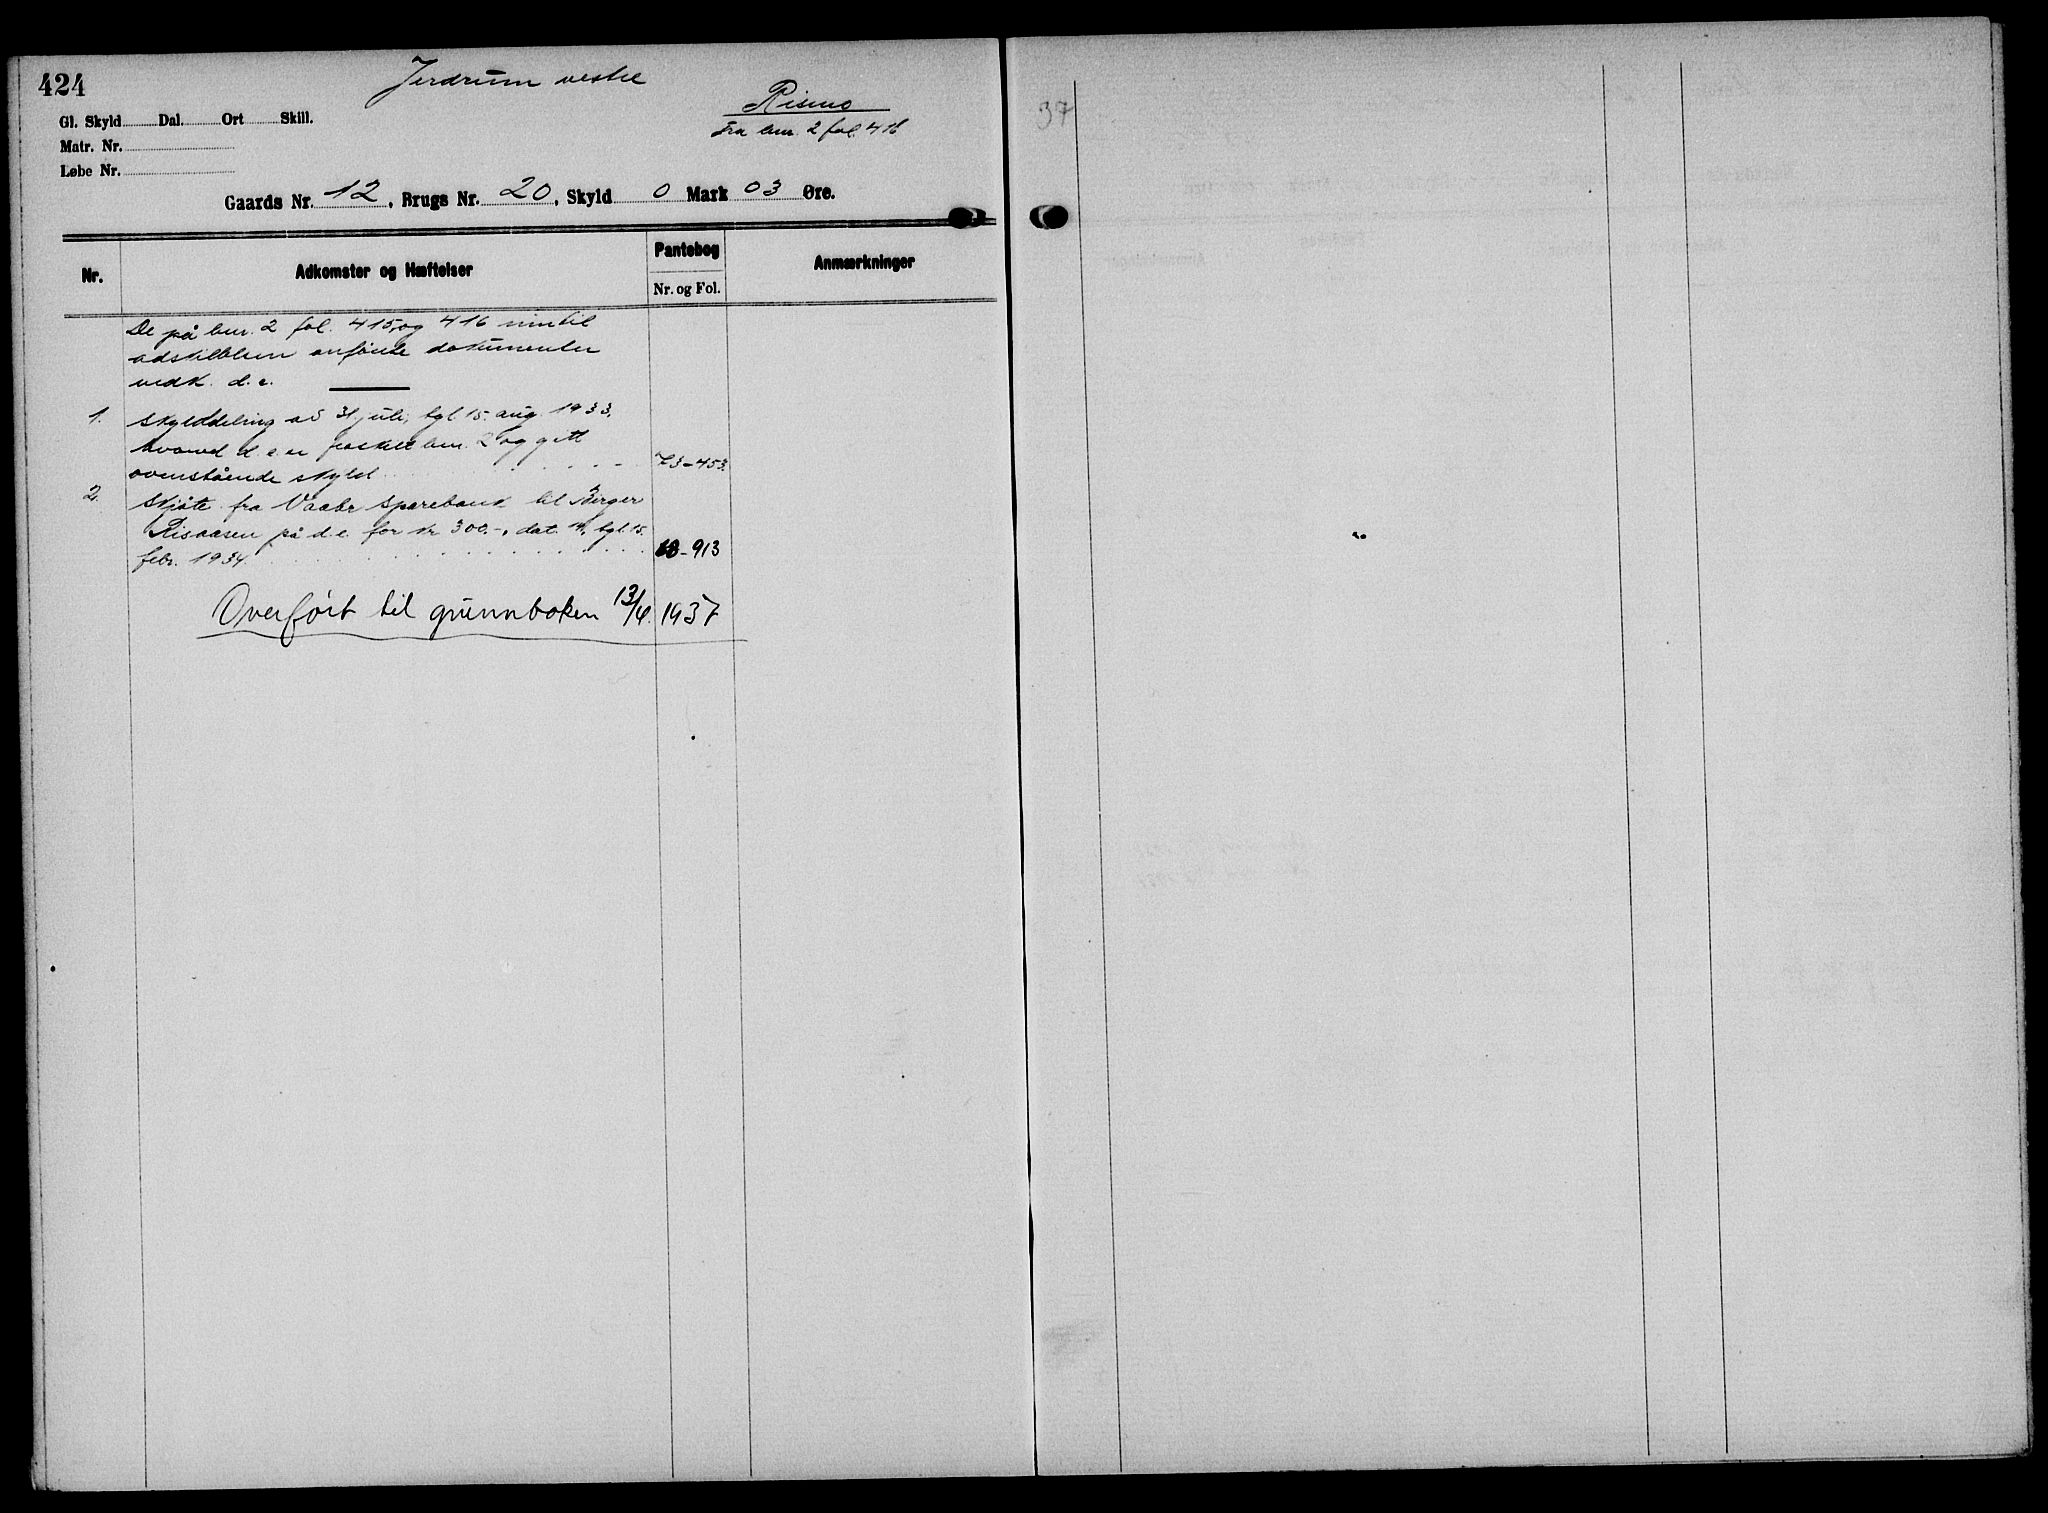 424
Jerdrum vestre
Rismo
Fra bnr. 2 fol. 416
Gl. Skyld Dal. Ort Skill.
Matr. Nr.
Løbe Nr.
Gaards Nr. 12, Brugs Nr. 20, Skyld 0 Mark 03 Øre.
Nr. Adkomster og Hæftelser Pantebog Anmærkninger
Nr. og Fol.
De på bnr. 2 fol. 415 og 416 inntil
adskillelsen anførte dokumenter
vedk. d.e.
1. Skylddeling av 31 juli, tgl. 15. aug. 1933,
hvorved d.e. er fraskilt bnr. 2 og gitt
ovenstående skyld 73-453.
2. Skjøte fra Vaaler sparebank til Birger
Risaasen på d.e. for kr. 300.-, dat. 14, tgl. 15.
febr. 1934. -913
Overført til grunnboken 13/4. 1937
37